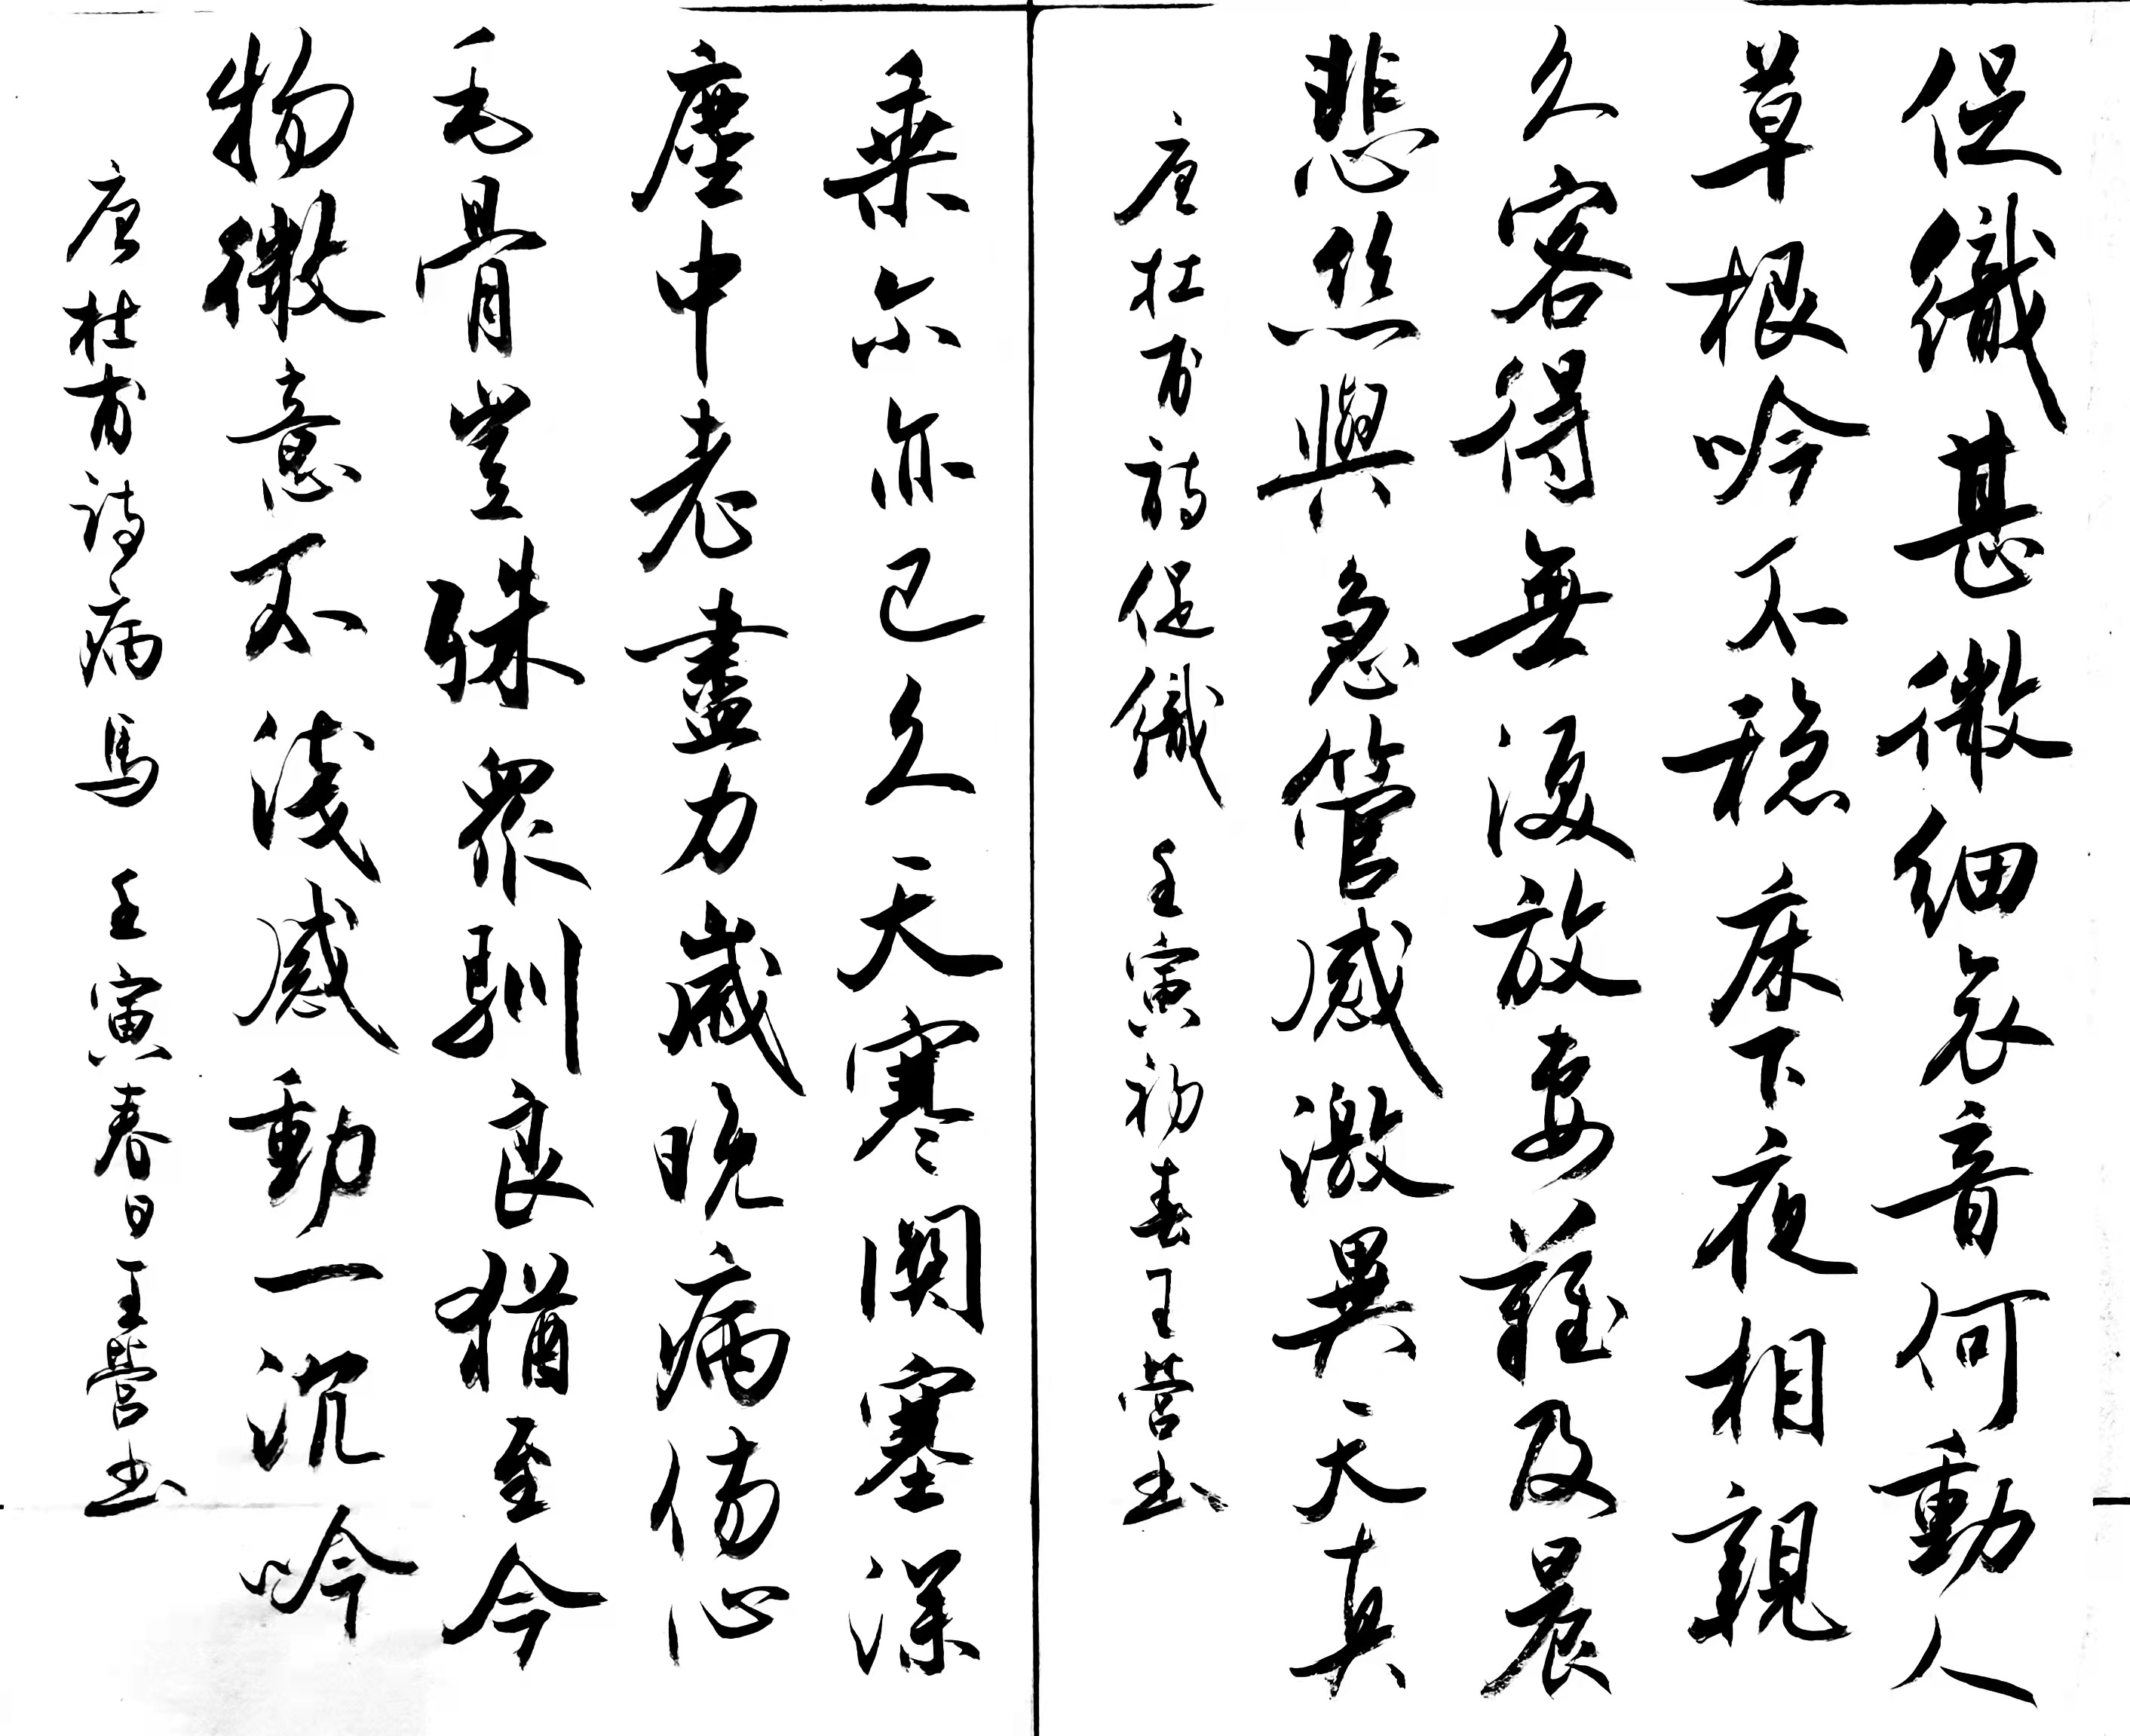 促織甚微細哀音何動人
草根吟不穩床下夜相親
久客得無淚放妻難及晨
悲丝與急管感激異天真
唐杜甫詩促織 壬寅初春王营书
乘尔亦已久天寒関塞深
塵中老盡力歲晚病傷心
毛骨豈殊衆馴良猶至今
物微意不淺感動一沉吟
唐杜甫詩病馬 壬寅春日王營书